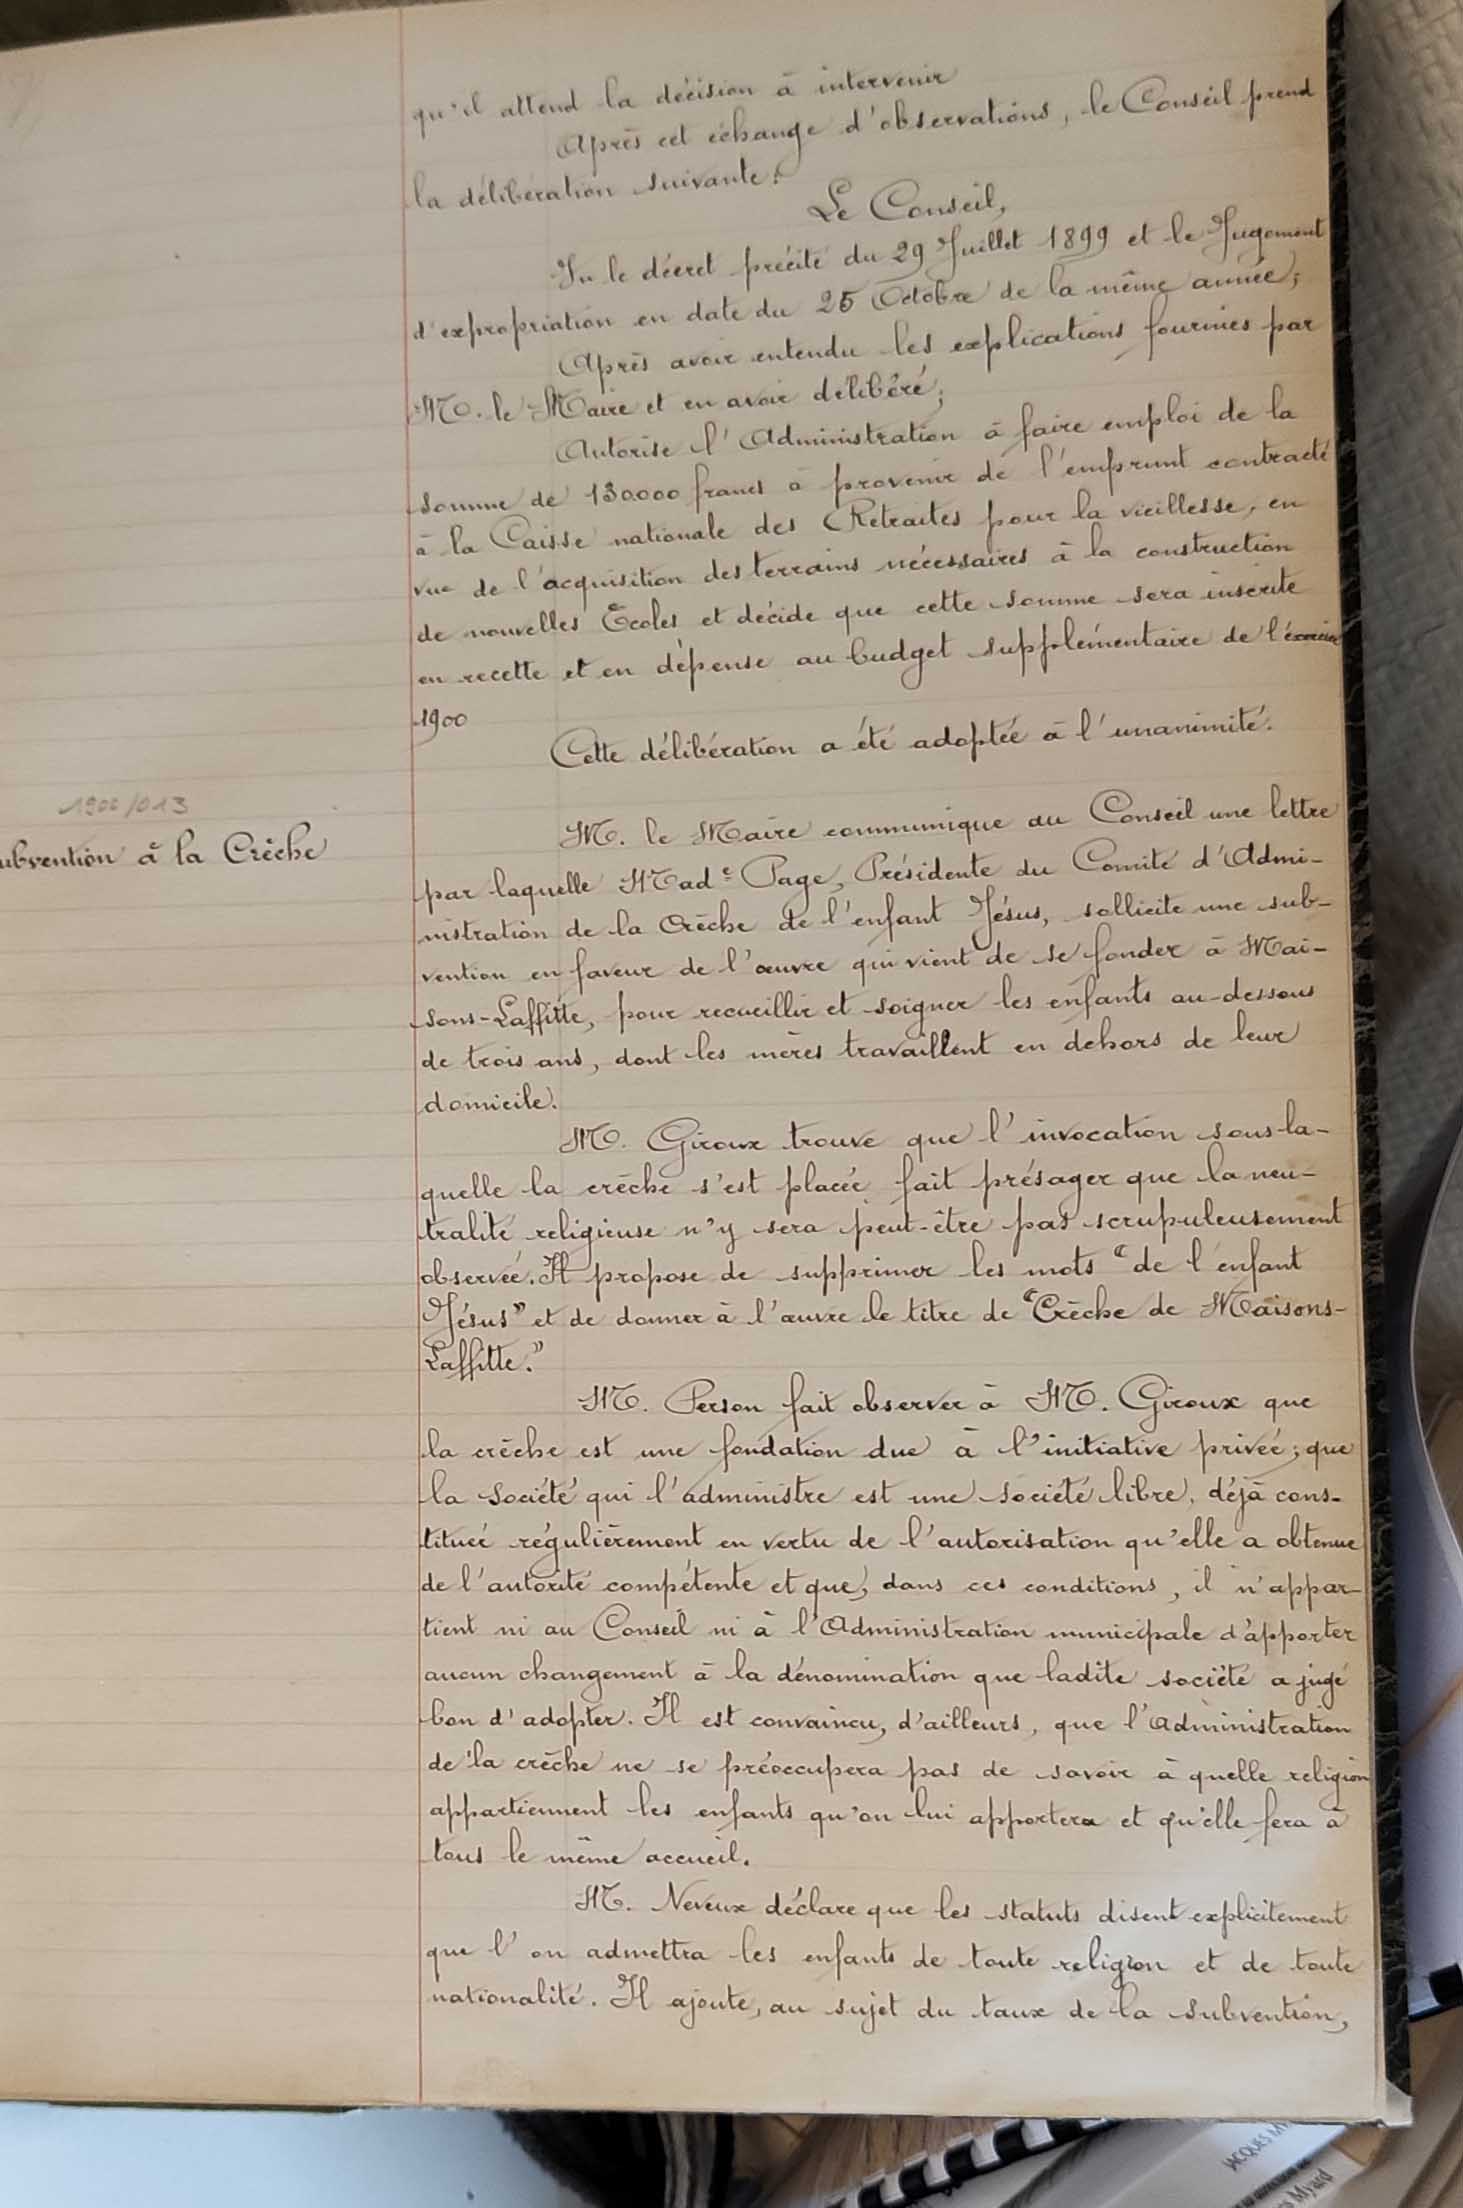 qu'il attend la décision à intervenir
Après cet échange d'observations, le Conseil prend
la délibération suivante:
Le Conseil,
Vu le décret précité du 29 Juillet 1899 et le Jugement
d'expropriation en date du 25 Octobre de la même année;
Après avoir entendu les explications fournies par
M. le Maire et en avoir délibéré;
Autorise l'Administration à faire emploi de la
somme de 130.000 francs à provenir de l'emprunt contracté
à la Caisse nationale des Retraites pour la vieillesse, en
vue de l'acquisition des terrains nécessaires à la construction
de nouvelles Ecoles et décide que cette somme sera inscrite
en recette et en dépense au budget supplémentaire de l'exercice
1900
Cette délibération a été adoptée à l'unanimité.
1900/013
ubvention à la Crèche
M. le Maire communique au Conseil une lettre
par laquelle Made Page, Présidente du Comité d'Admi-
nistration de la Crèche de l'enfant Jésus, sollicite une sub-
vention en faveur de l'œuvre qui vient de se fonder à Mai-
sons-Laffitte, pour recueillir et soigner les enfants au-dessous
de trois ans, dont les mères travaillent en dehors de leur
domicile.
M. Giroux trouve que l'invocation sous la-
quelle la crèche s'est placée fait présager que la neu-
tralité religieuse n'y sera peut-être pas scrupuleusement
observée. Il propose de supprimer les mots "de l'enfant
Jésus" et de donner à l'œuvre le titre de "Crèche de Maisons-
Laffitte."
M. Person fait observer à M. Giroux que
la crèche est une fondation due à l'initiative privée; que
la société qui l'administre est une société libre, déjà cons-
tituée régulièrement en vertu de l'autorisation qu'elle a obtenue
de l'autorité compétente et que, dans ces conditions, il n'appar-
tient ni au Conseil ni à l'Administration municipale d'apporter
aucun changement à la dénomination que ladite société a jugé
bon d'adopter. Il est convaincu, d'ailleurs, que l'administration
de la crèche ne se préoccupera pas de savoir à quelle religion
appartiennent les enfants qu'on lui apportera et qu'elle fera à
tous le même accueil.
M. Neveux déclare que les statuts disent explicitement
que l'on admettra les enfants de toute religion et de toute
nationalité. Il ajoute, au sujet du taux de la subvention,
JACQUES MY
Myard